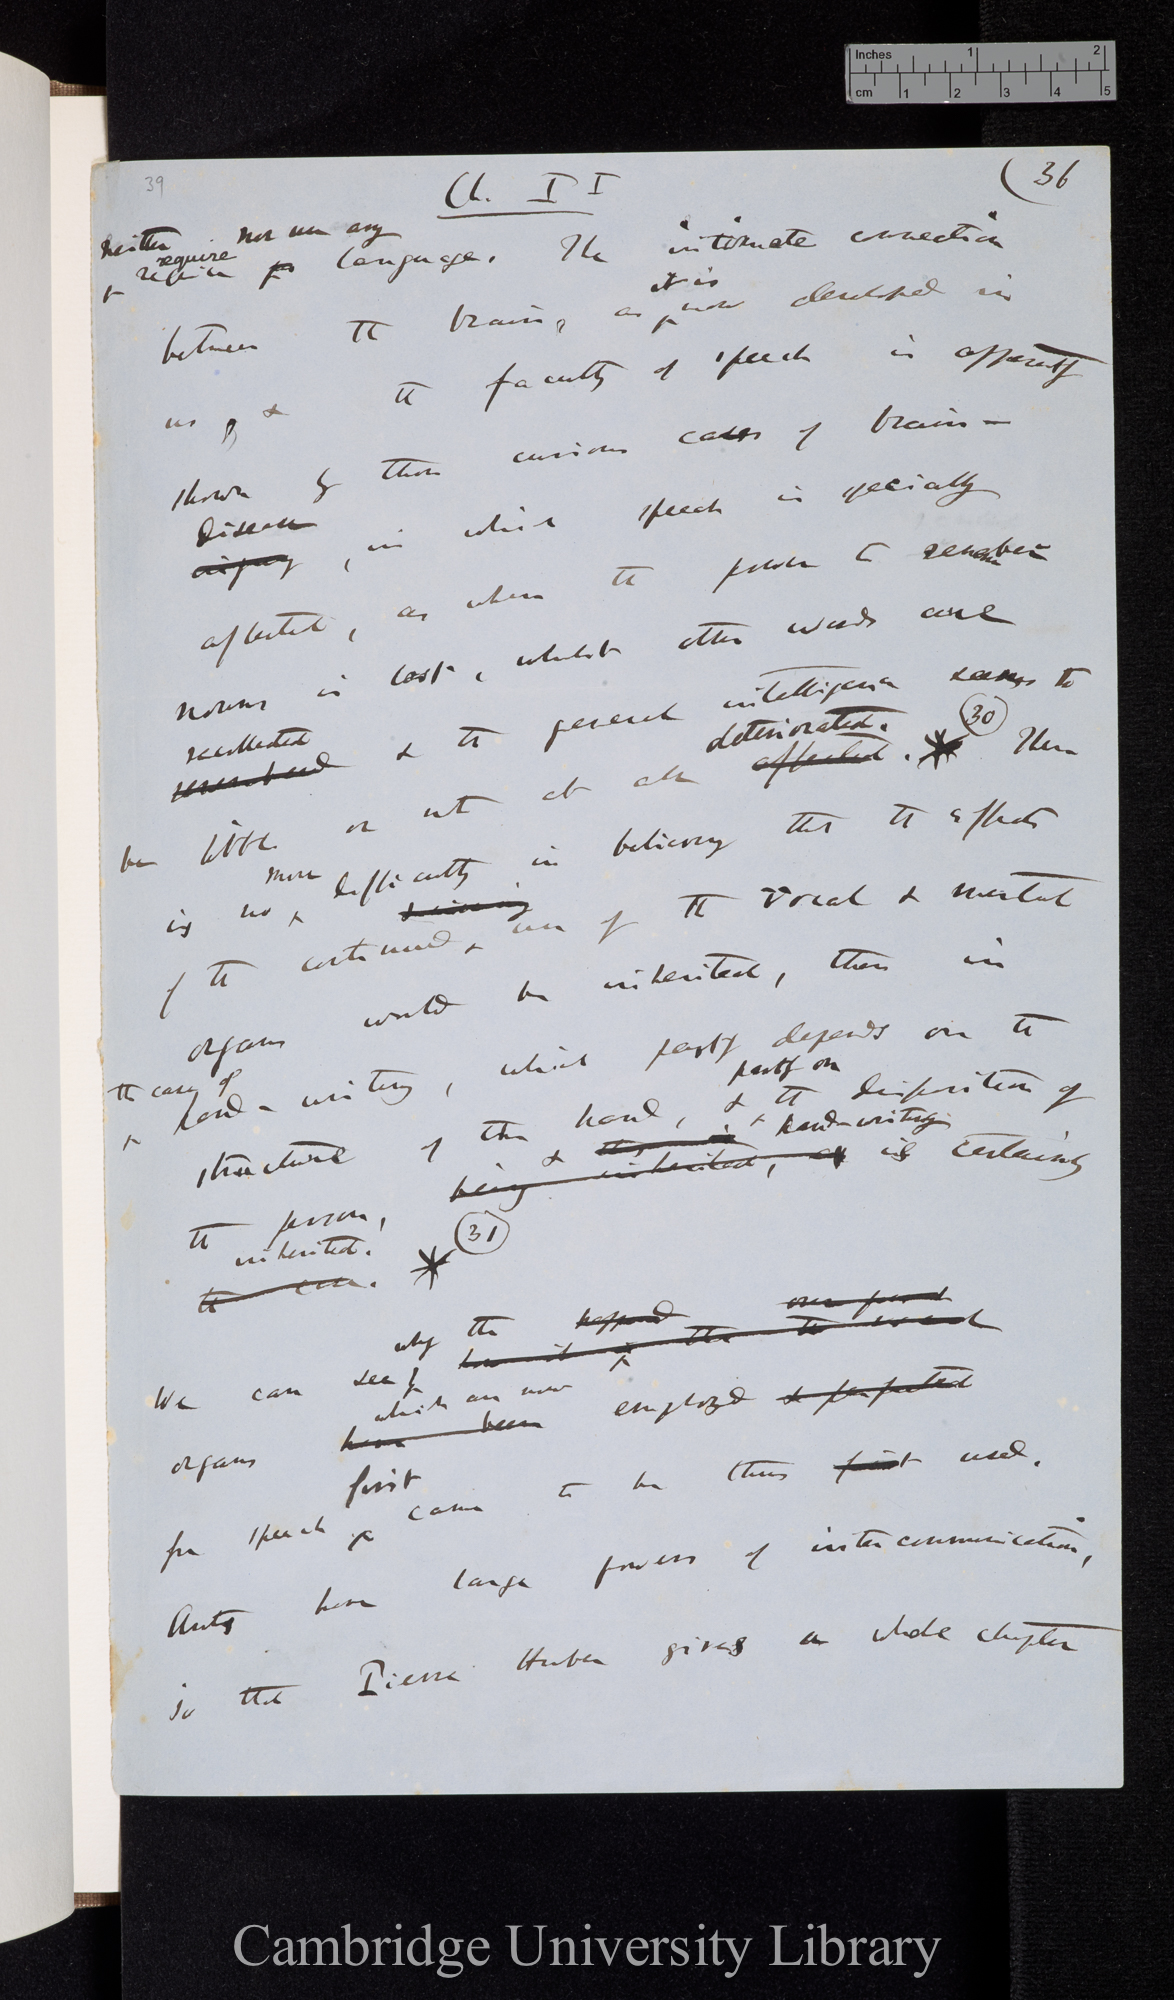 Inches 1 2
cm 1 2 3 4 5
39
Ch. II
(36
neither require nor use any
language. The intimate connection
it is
between the brain, as now developed in
us, & the faculty of speech is apparently
shown by those curious cases of brain-
disease
injury, in which speech is specially
affected, as when the power to remember
nouns is lost, whilst other words are
recollected
remembered & the general intelligence seems to
deteriorated. (30)
be little or not at all affected. * There
more
is no difficulty in believing that the effects
of the continued use of the vocal & mental
organs would be inherited, than in
the case of
hand-writing, which partly depends on the
partly on
structure of the hand, & the disposition of
& hand-writing
the person, being inherited, is certainly
inherited. (31)
the case. *
why the happened over found
We can see how it is that the
which are now
organs have been employed & perfected
first
for speech came to be thus first used.
Ants have large powers of intercommunication,
so that Pierre Huber gives a whole chapter
Cambridge University Library